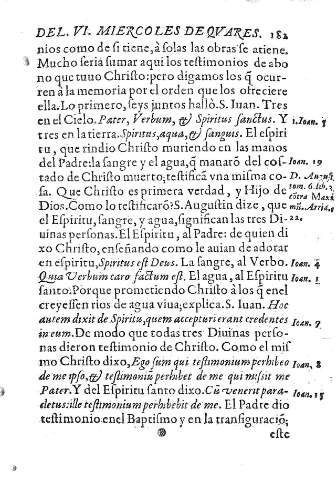 DEL. VI. MIERCOLES DE QVARES. 182
nios como de si tiene, à solas las obras se atiene.
Mucho seria sumar aqui los testimonios de abo
no que tuuo Christo: pero digamos los q̃ ocur-
ren à la memoria por el orden que los ofreciere
ella. Lo primero, seys juntos hallò. S. Iuan. Tres
en el Cielo. Pater, Verbum, &) Spiritus sanctus. Y 1. Ioan. 5
tres en la tierra. Spiritus, aqua, &) sanguis. El espiri
tu, que rindio Christo muriendo en las manos
del Padre: la sangre y el agua, q̃ manarõ del cos- Ioan. 19
tado de Christo muerto; testificã vna misma co- D. August.
sa. Que Christo es primera verdad, y Hijo de tom. 6. lib. 3.
Dios. Como lo testificarõ? S. Augustin dize, que cõtra Maxi
el Espiritu, sangre, y agua, significan las tres Di- mū. Arria. c.
uinas personas. El Espiritu, al Padre: de quien di 22.
xo Christo, enseñando como le auian de adorar
en espiritu, Spiritus est Deus. La sangre, al Verbo. Ioan. 4
Quia Verbum caro factum est. El agua, al Espiritu Ioan. 1
santo: Porque prometiendo Christo à los q̃ enel
creyessen rios de agua viua; explica. S. Iuan. Hoc
autem dixit de Spiritu, quem accepturi erant credentes Ioan. 7
in eum. De modo que todas tres Diuinas perso-
nas dieron testimonio de Christo. Como el mis
mo Christo dixo, Ego sum qui testimonium perhibeo Ioan. 8
de me ipso, &) testimoniũ perhibet de me qui missit me
Pater. Y del Espiritu santo dixo. Cũ venerit para- Ioan. 15
cletus: ille testimonium perhibebit de me. El Padre dio
testimonio enel Baptismo y en la transfiguraciõ;
este